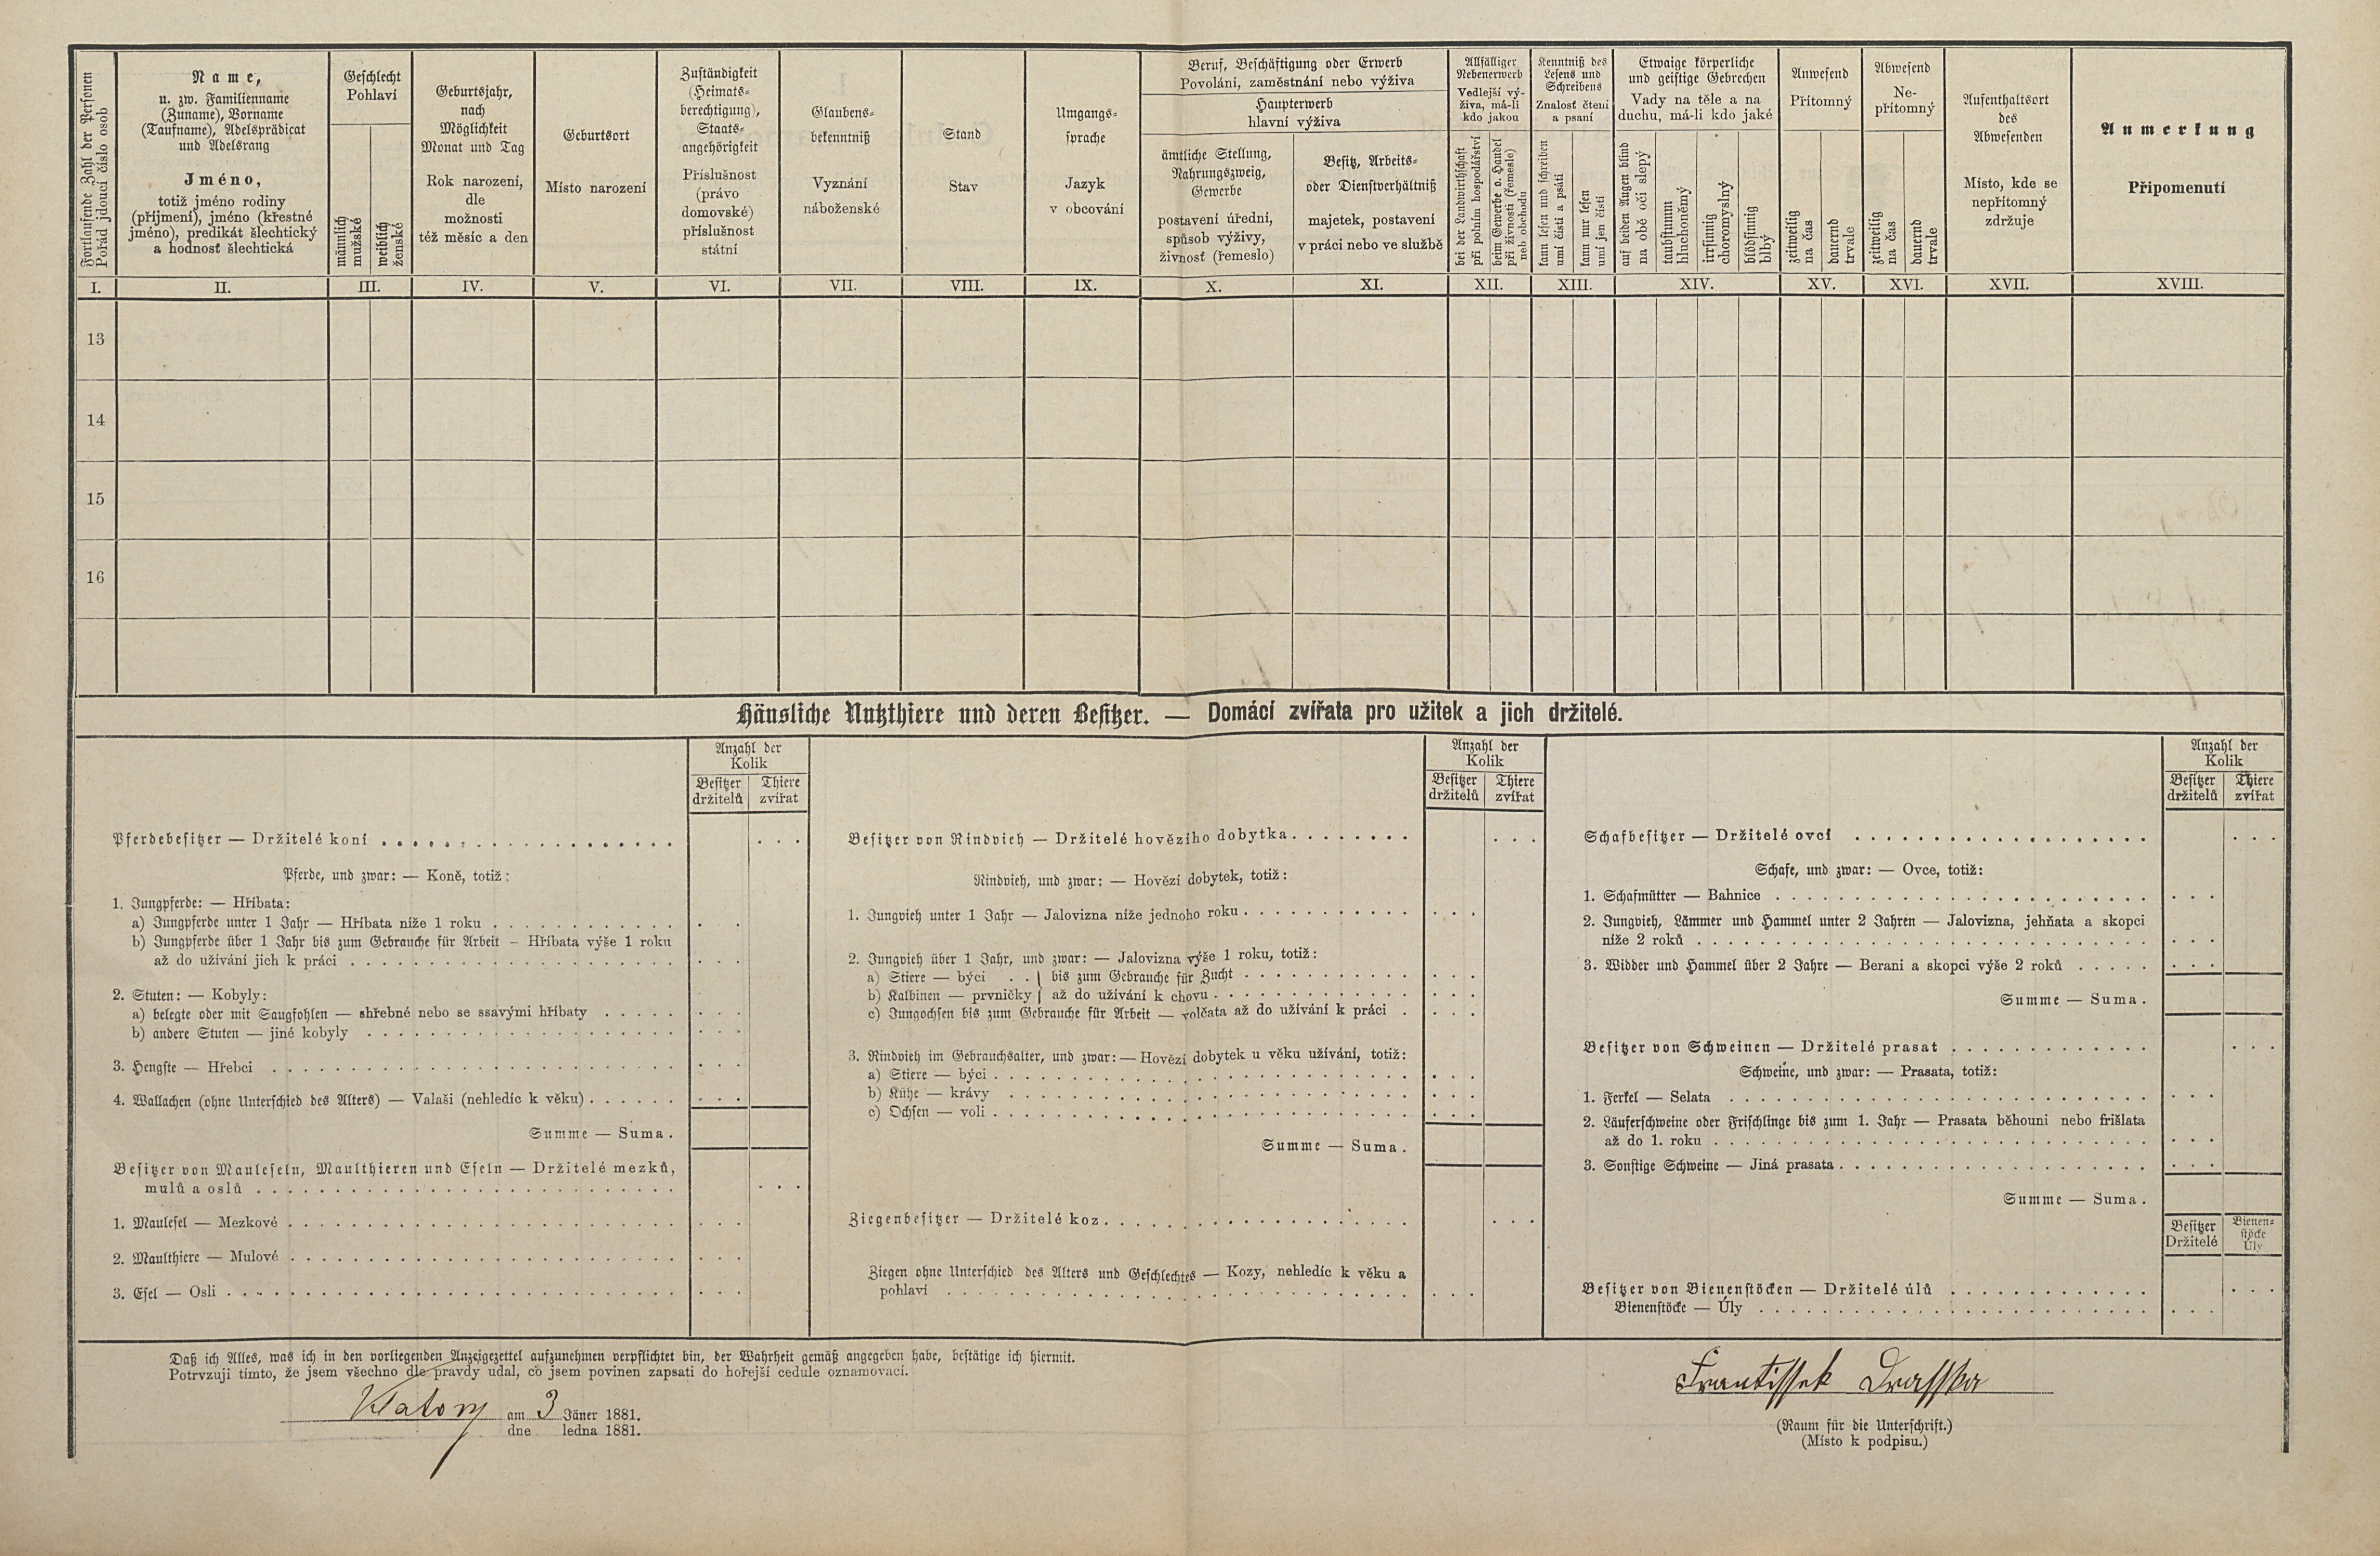 Fortlaufende Zahl der Personen
Pořád jdoucí číslo osob
Name,
u. zw. Familienname
(Zuname), Vorname
(Taufname), Adelsprädicat
und Adelsrang
Jméno,
totiž jméno rodiny
(příjmení), jméno (křestné
jméno), predikát šlechtický
a hodnosť šlechtická
Geschlecht
Pohlaví
männlich
mužské
weiblich
ženské
Geburtsjahr,
nach
Möglichkeit
Monat und Tag
Rok narození,
dle
možnosti
též měsíc a den
Geburtsort
Místo narození
Zuständigkeit
(Heimats-
berechtigung),
Staats-
angehörigkeit
Příslušnost
(právo
domovské)
příslušnost
státní
Glaubens-
bekenntniß
Vyznání
náboženské
Stand
Stav
Umgangs-
sprache
Jazyk
v obcování
Beruf, Beschäftigung oder Erwerb
Povolání, zaměstnání nebo výživa
Haupterwerb
hlavní výživa
ämtliche Stellung,
Nahrungszweig,
Gewerbe
postavení úřední,
spůsob výživy,
živnosť (řemeslo)
Besitz, Arbeits-
oder Dienstverhältniß
majetek, postavení
v práci nebo ve službě
Allfälliger
Nebenerwerb
Vedlejší vý-
živa, má-li
kdo jakou
bei der Landwirthschaft
při polním hospodářství
beim Gewerbe o. Handel
při živnosti (řemesle)
neb obchodu
Kenntniß des
Lesens und
Schreibens
Znalosť čtení
a psaní
kann lesen und schreiben
umí čísti a psáti
kann nur lesen
umí jen čísti
Etwaige körperliche
und geistige Gebrechen
Vady na těle a na
duchu, má-li kdo jaké
auf beiden Augen blind
na obě oči slepý
taubstumm
hluchoněmý
irrsinnig
choromyslný
blödsinnig
blbý
Anwesend
Přítomný
zeitweilig
na čas
dauernd
trvale
Abwesend
Ne-
přítomný
zeitweilig
na čas
dauernd
trvale
Aufenthaltsort
des
Abwesenden
Místo, kde se
nepřítomný
zdržuje
Anmerkung
Připomenutí
I. II. III. IV. V. VI. VII. VIII. IX. X. XI. XII. XIII. XIV. XV. XVI. XVII. XVIII.
13
14
15
16
Häusliche Nutzthiere und deren Besitzer. — Domácí zvířata pro užitek a jich držitelé.
Anzahl der
Kolik
Besitzer Thiere
držitelů zvířat
Pferdebesitzer — Držitelé koní
Pferde, und zwar: — Koně, totiž:
1. Jungpferde: — Hříbata:
a) Jungpferde unter 1 Jahr — Hříbata níže 1 roku
b) Jungpferde über 1 Jahr bis zum Gebrauche für Arbeit – Hříbata výše 1 roku
až do užívání jich k práci
2. Stuten: — Kobyly:
a) belegte oder mit Saugfohlen — shřebné nebo se ssavými hříbaty
b) andere Stuten — jiné kobyly
3. Hengste — Hřebci
4. Wallachen (ohne Unterschied des Alters) — Valaši (nehledíc k věku)
Summe — Suma.
Besitzer von Mauleseln, Maulthieren und Eseln — Držitelé mezků,
mulů a oslů
1. Maulesel — Mezkové
2. Maulthiere — Mulové
3. Esel — Osli
Anzahl der
Kolik
Besitzer Thiere
držitelů zvířat
Besitzer von Rindvieh — Držitelé hovězího dobytka
Rindvieh, und zwar: — Hovězí dobytek, totiž:
1. Jungvieh unter 1 Jahr — Jalovizna níže jednoho roku
2. Jungvieh über 1 Jahr, und zwar: — Jalovizna výše 1 roku, totiž:
a) Stiere — býci . . } bis zum Gebrauche für Zucht
b) Kalbinen — prvničky } až do užívání k chovu
c) Jungochsen bis zum Gebrauche für Arbeit — volčata až do užívání k práci
3. Rindvieh im Gebrauchsalter, und zwar: — Hovězí dobytek u věku užívání, totiž:
a) Stiere — býci
b) Kühe — krávy
c) Ochsen — voli
Summe — Suma.
Ziegenbesitzer — Držitelé koz
Ziegen ohne Unterschied des Alters und Geschlechtes — Kozy, nehledíc k věku a
pohlaví
Anzahl der
Kolik
Besitzer Thiere
držitelů zvířat
Schafbesitzer — Držitelé ovcí
Schafe, und zwar: — Ovce, totiž:
1. Schafmütter — Bahnice
2. Jungvieh, Lämmer und Hammel unter 2 Jahren — Jalovizna, jehňata a skopci
níže 2 roků
3. Widder und Hammel über 2 Jahre — Berani a skopci výše 2 roků
Summe — Suma.
Besitzer von Schweinen — Držitelé prasat
Schweine, und zwar: — Prasata, totiž:
1. Ferkel — Selata
2. Läuferschweine oder Frischlinge bis zum 1. Jahr — Prasata běhouni nebo frišlata
až do 1. roku
3. Sonstige Schweine — Jiná prasata
Summe — Suma.
Besitzer Bienen-
stöcke
Držitelé Úly
Besitzer von Bienenstöcken — Držitelé úlů
Bienenstöcke — Úly
Daß ich Alles, was ich in den vorliegenden Anzeigezettel aufzunehmen verpflichtet bin, der Wahrheit gemäß angegeben habe, bestätige ich hiermit.
Potvrzuji tímto, že jsem všechno dle pravdy udal, co jsem povinen zapsati do hořejší cedule oznamovací.
Klatovy am 3 Jäner 1881.
dne ledna 1881.
Frantissek Drasska
(Raum für die Unterschrift.)
(Místo k podpisu.)